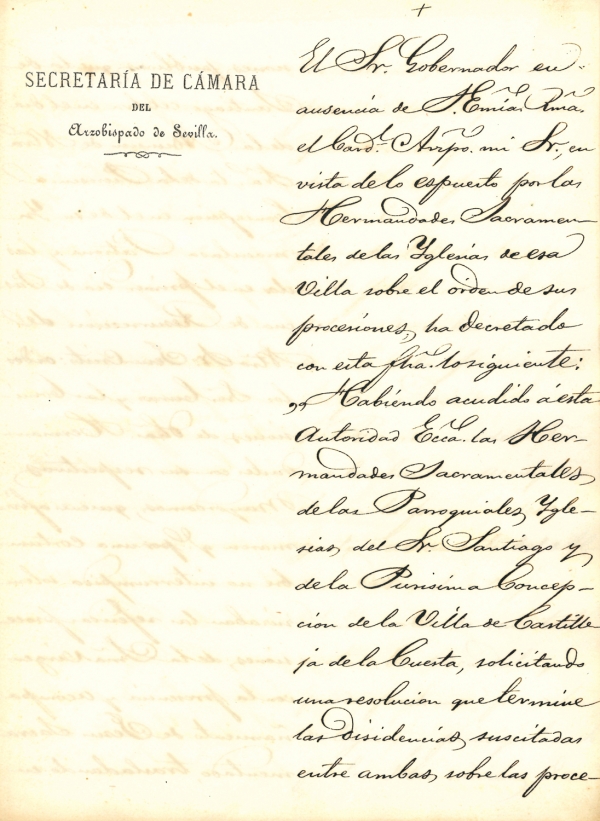 +
SECRETARÍA DE CÁMARA
DEL
Arzobispado de Sevilla.
El Sr. Gobernador en
ausencia de S. Emía. Rma.
el Card.l Arzpo. mi Sr., en
vista de lo espuesto por las
Hermandades Sacramen-
tales de las Yglesias de esa
Villa sobre el orden de sus
procesiones, ha decretado
con esta fha. lo siguiente:
„Habiendo acudido á esta
Autoridad Ecca. las Her-
mandades Sacramentales
de las Parroquiales Ygle-
sias del Sr. Santiago y
de la Purisima Concep-
cion de la Villa de Castille-
ja de la Cuesta, solicitando
una resolucion que termine
las disidencias suscitadas
entre ambas sobre las proce-